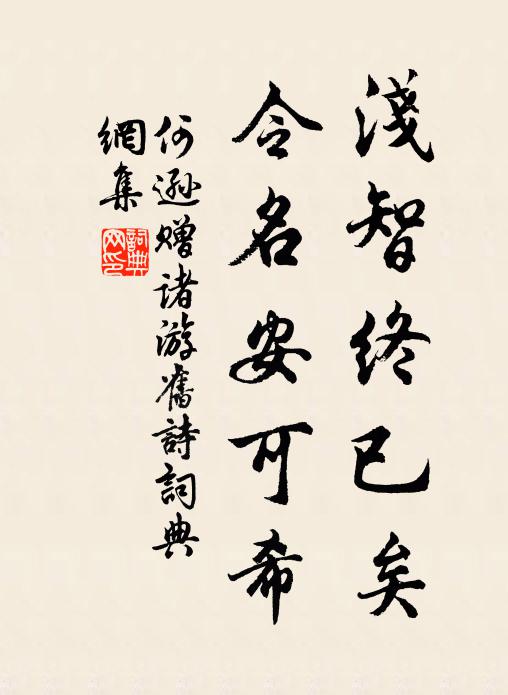 淺智終已矣
令名安可希
何遜贈諸游舊詩詞典
網集
詞典
网印